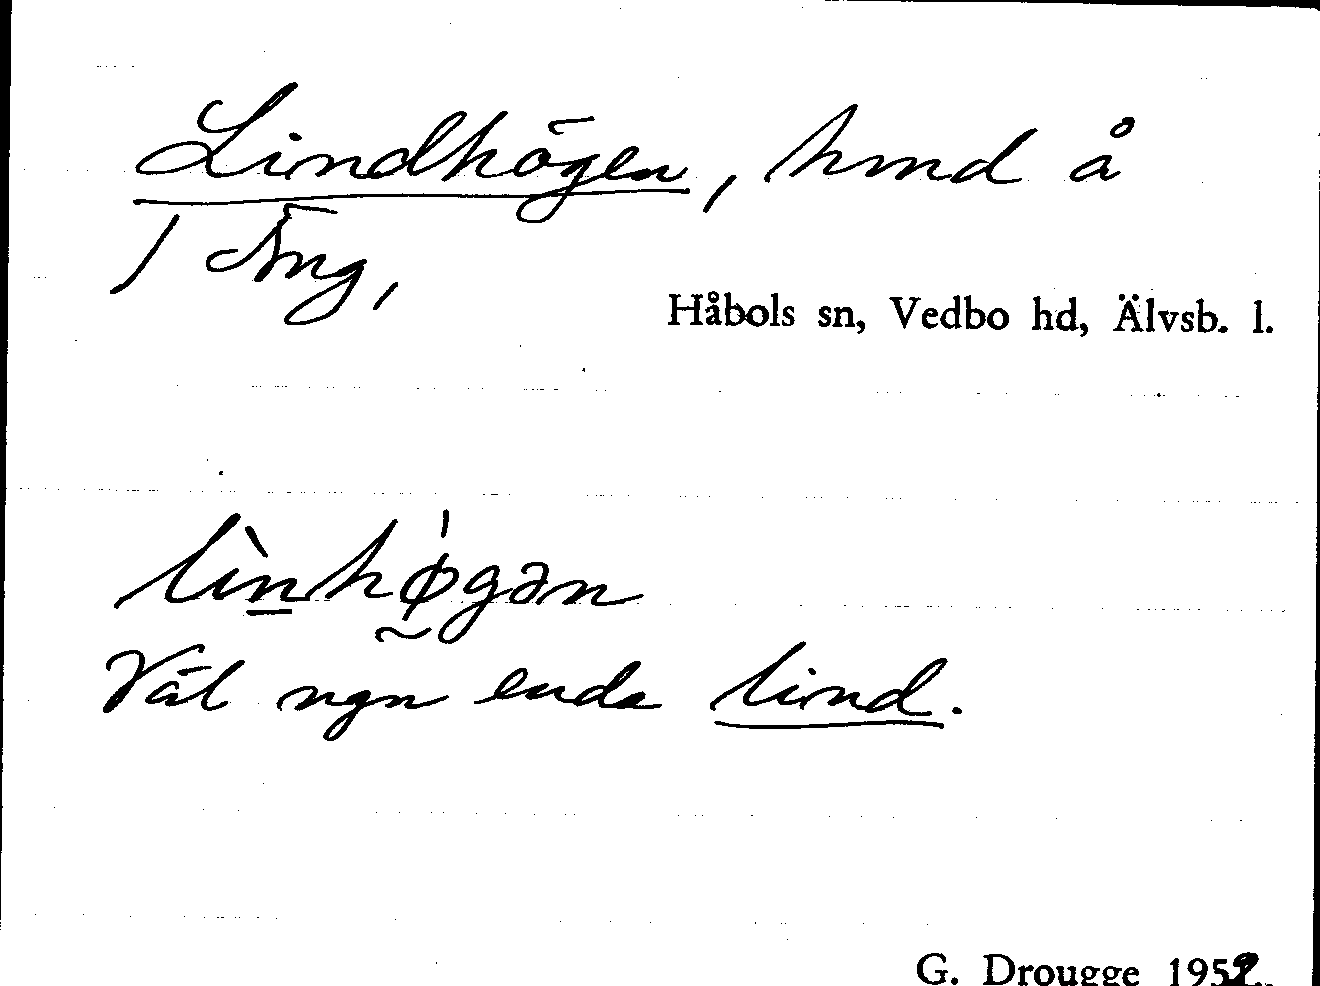 Lindhögen, hmd å
1 Äng,
Håbols sn, Vedbo hd, Älvsb. l.
lìnhǿ̰gən
Väl ngn enda lind.
G. Drougge 1959.